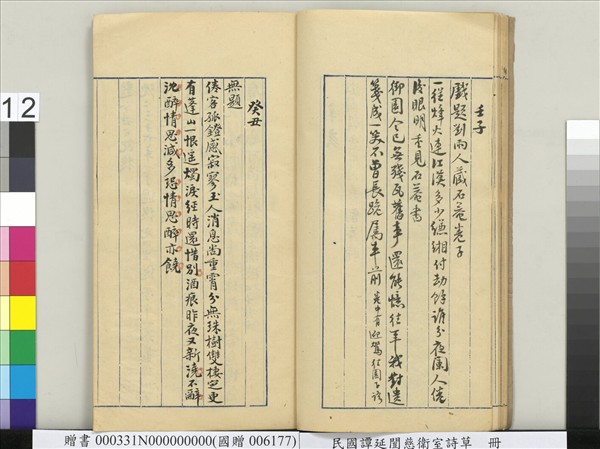 壬子
戲題劉雨人藏石菴卷子
一從烽火連江漢多少縑緗付劫餘誰分夜闌人倦
後眼明重見石菴書
御園今已無殘瓦舊事還能憶往年我對遺
箋成一笑不曾長跪屬車前
癸丑
無題
倦客孤鐙感寂寥玉人消息尚重霄分無珠樹雙棲定更
有蓬山一恨遙燭淚經時還惜別酒痕昨夜又新澆不辭
沈醉情思減多恐情思醉亦饒
12
贈書 000331N000000000(國贈 006177)
民國譚延闓慈衛室詩草 冊